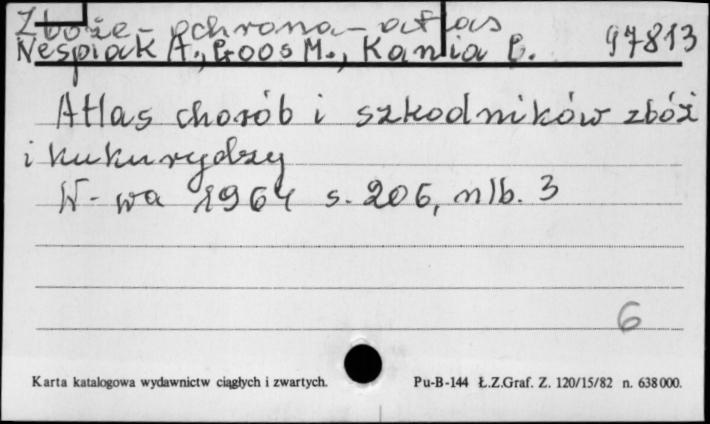 Zboże - ochrona - atlas
Nespiak A., Goos M., Kania C. 97813
Atlas chorób i szkodników zbóż
i kukurydzy
W-wa 1964 s. 206, nlb. 3
6
Karta katalogowa wydawnictw ciągłych i zwartych. Pu-B-144 Ł.Z.Graf. Z. 120/15/82 n. 638000.